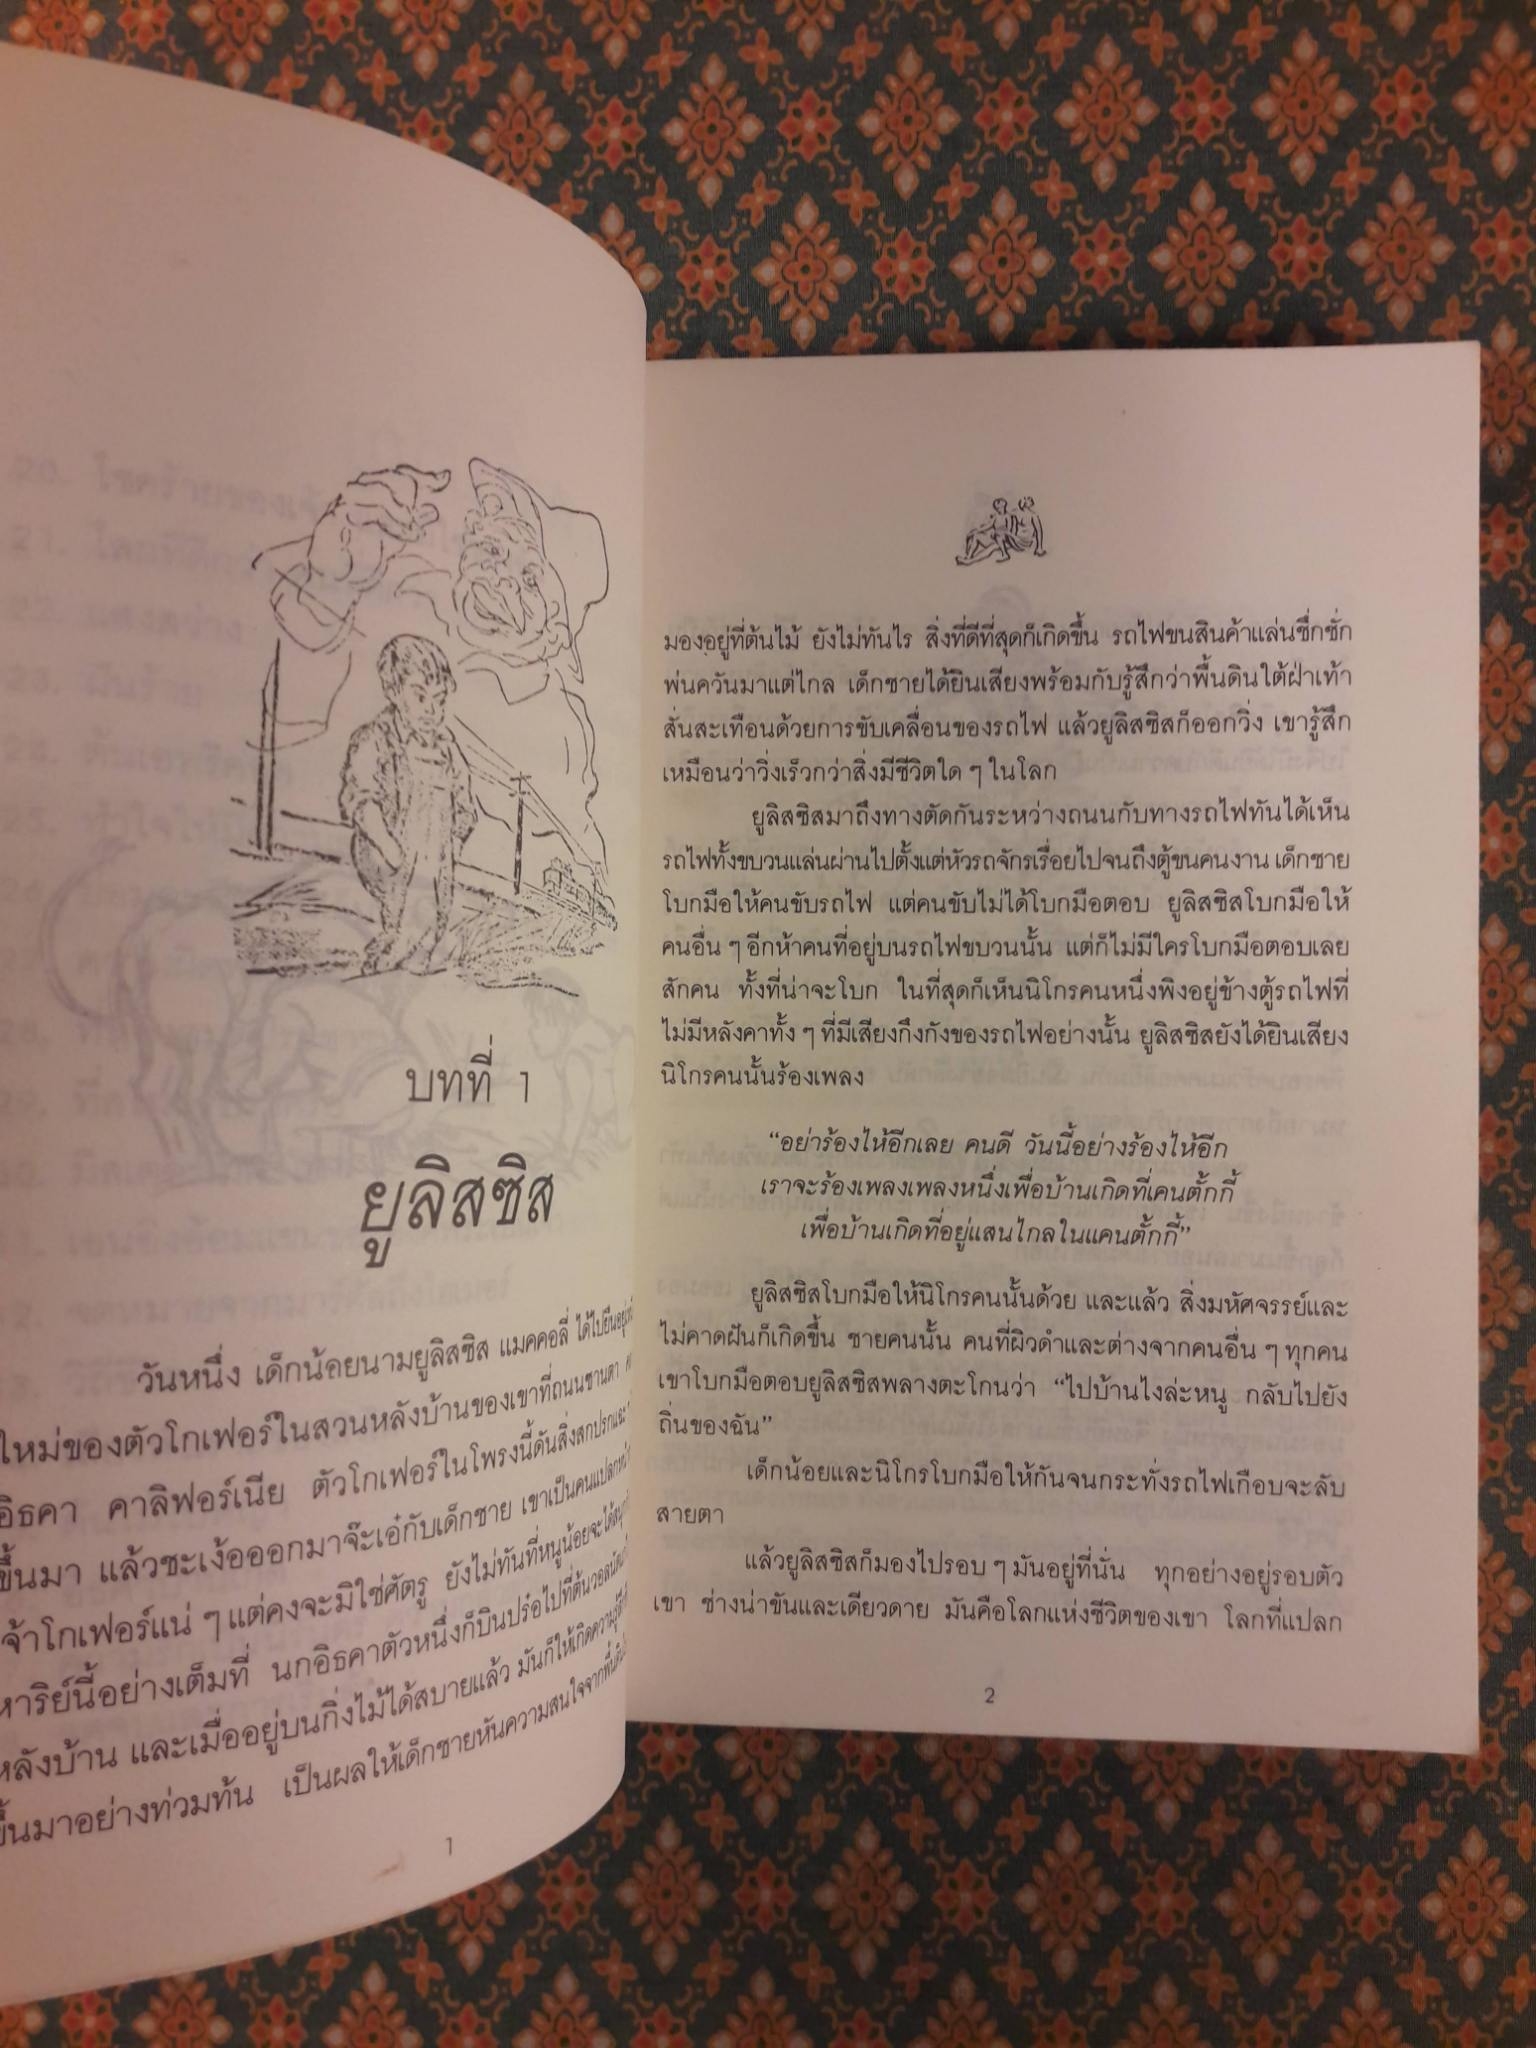 บทที่ 1
ยูลิสซิส
วันหนึ่ง เด็กน้อยนามยูลิสซิส แมคคอลี่ ได้ไปยืนอยู่
ใหม่ของตัวโกเฟอร์ในสวนหลังบ้านของเขาที่ถนนซานตา
อิธคา คาลิฟอร์เนีย ตัวโกเฟอร์ในโพรงนี้ดันสิ่งสกปรกแฉะ
ขึ้นมา แล้วชะเง้อออกมาจ๊ะเอ๋กับเด็กชาย เขาเป็นคนแปลกหน้า
จ้าโกเฟอร์แน่ ๆ แต่คงจะมิใช่ศัตรู ยังไม่ทันที่หนูน้อยจะได้สนุก
หาริย์นี้อย่างเต็มที่ นกอิธคาตัวหนึ่งก็บินปร๋อไปที่ต้นวอลนัต
หลังบ้าน และเมื่ออยู่บนกิ่งไม้ได้สบายแล้ว มันก็ให้เกิดความรู้สึก
ขึ้นมาอย่างท่วมท้น เป็นผลให้เด็กชายหันความสนใจจากพื้นดิน
1
มองอยู่ที่ต้นไม้ ยังไม่ทันไร สิ่งที่ดีที่สุดก็เกิดขึ้น รถไฟขนสินค้าแล่นชึ่กชั่ก
พ่นควันมาแต่ไกล เด็กชายได้ยินเสียงพร้อมกับรู้สึกว่าพื้นดินใต้ฝ่าเท้า
สั่นสะเทือนด้วยการขับเคลื่อนของรถไฟ แล้วยูลิสซิสก็ออกวิ่ง เขารู้สึก
เหมือนว่าวิ่งเร็วกว่าสิ่งมีชีวิตใด ๆ ในโลก
ยูลิสซิสมาถึงทางตัดกันระหว่างถนนกับทางรถไฟทันได้เห็น
รถไฟทั้งขบวนแล่นผ่านไปตั้งแต่หัวรถจักรเรื่อยไปจนถึงตู้ขนคนงาน เด็กชาย
โบกมือให้คนขับรถไฟ แต่คนขับไม่ได้โบกมือตอบ ยูลิสซิสโบกมือให้
คนอื่น ๆ อีกห้าคนที่อยู่บนรถไฟขบวนนั้น แต่ก็ไม่มีใครโบกมือตอบเลย
สักคน ทั้งที่น่าจะโบก ในที่สุดก็เห็นนิโกรคนหนึ่งพิงอยู่ข้างตู้รถไฟที่
ไม่มีหลังคาทั้ง ๆ ที่มีเสียงกึงกังของรถไฟอย่างนั้น ยูลิสซิสยังได้ยินเสียง
นิโกรคนนั้นร้องเพลง
“อย่าร้องไห้อีกเลย คนดี วันนี้อย่างร้องไห้อีก
เราจะร้องเพลงเพลงหนึ่งเพื่อบ้านเกิดที่เคนตั้กกี้
เพื่อบ้านเกิดที่อยู่แสนไกลในแคนตั้กกี้”
ยูลิสซิสโบกมือให้นิโกรคนนั้นด้วย และแล้ว สิ่งมหัศจรรย์และ
ไม่คาดฝันก็เกิดขึ้น ชายคนนั้น คนที่ผิวดำและต่างจากคนอื่น ๆ ทุกคน
เขาโบกมือตอบยูลิสซิสพลางตะโกนว่า “ไปบ้านไงล่ะหนู กลับไปยัง
ถิ่นของฉัน”
เด็กน้อยและนิโกรโบกมือให้กันจนกระทั่งรถไฟเกือบจะลับ
สายตา
แล้วยูลิสซิสก็มองไปรอบ ๆ มันอยู่ที่นั่น ทุกอย่างอยู่รอบตัว
เขา ช่างน่าขันและเดียวดาย มันคือโลกแห่งชีวิตของเขา โลกที่แปลก
2